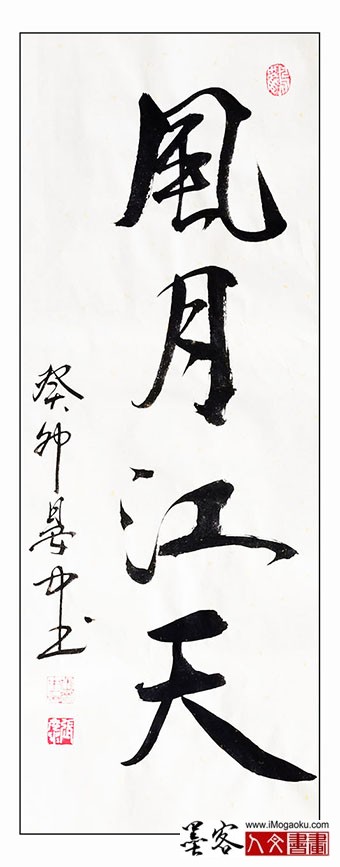 風月江天
癸卯
书
墨客
www.iMogaoku.com
人文書畫